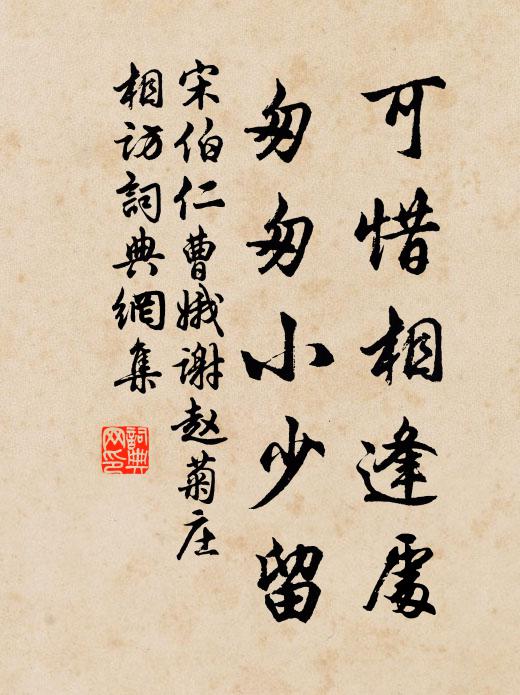 可惜相逢處
匆匆小少留
宋伯仁曹娥谢赵菊庄
相访詞典網集
詞典网印